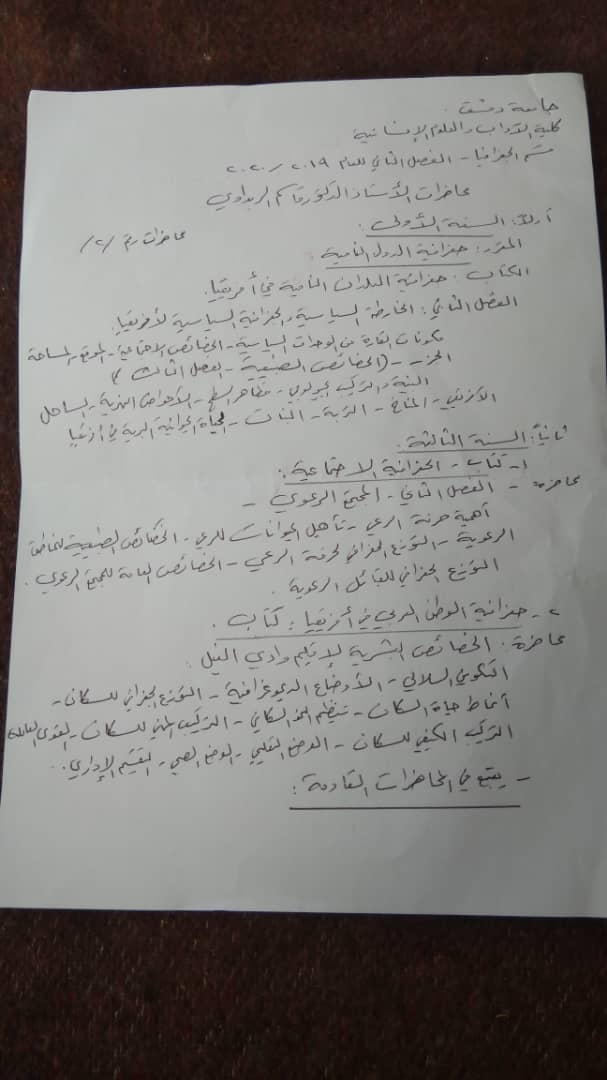 جامعة دمشق.
كلية الآداب والعلوم الإنسانية
قسم الجغرافيا - الفصل الثاني للعام ٢٠١٩/٢٠٢٠
محاضرات الأستاذ الدكتور قاسم الربداوي
محاضرات رقم /٢/
أولاً: السنة الأولى:
المقرر: جغرافية الدول النامية
الكتاب: جغرافية البلدان النامية في أفريقيا.
الفصل الثاني: الخارطة السياسية والجغرافية السياسية لأفريقيا.
مكونات القارة من الوحدات السياسية - الخصائص الاجتماعية - الموقع - المساحة
الجزر - (الخصائص الطبيعية - الفصل الثالث)
البنية والتركيب الجيولوجي - مظاهر السطح - الأحواض النهرية - الساحل
الأفريقي - المناخ - التربة - النبات - الحياة الحيوانية البرية في أفريقيا
ثانياً: السنة الثالثة:
١- كتاب - الجغرافية الاجتماعية:
محاضرة - الفصل الثاني - المجتمع الرعوي -
أهمية حرفة الرعي - تأهيل الحيوانات للرعي - الخصائص الطبيعية للمناطق
الرعوية - التوزع الجغرافي لحرفة الرعي - الخصائص العامة للمجتمع الرعوي.
التوزع الجغرافي للقبائل الرعوية.
٢- جغرافية الوطن العربي في أفريقيا: كتاب.
محاضرة: الخصائص البشرية لإقليم وادي النيل:
التكوين السلالي - الأوضاع الديموغرافية - التوزع الجغرافي للسكان -
أنماط حياة السكان - تنظيم النمو السكاني - التركيب المهني للسكان - القوى العاملة
التركيب الكيفي للسكان - الوضع التعليمي - الوضع الصحي - التقسيم الإداري..
- يتبع في المحاضرات القادمة: